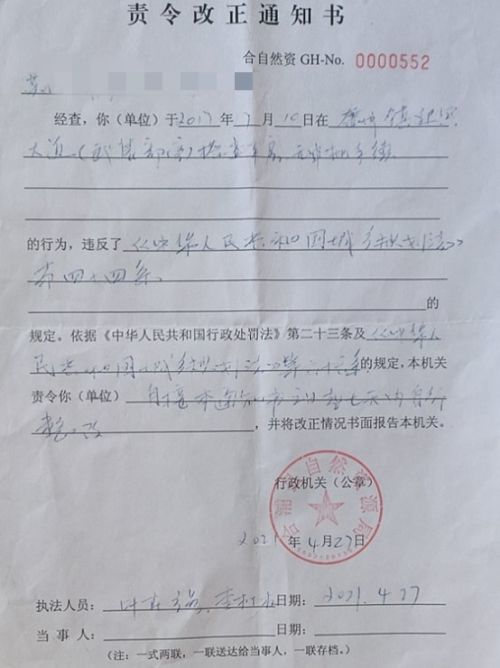 责令改正通知书
合自然资 GH-No. 0000552
经查,你(单位)于2017年 月10日在 镇
大道
的行为,违反了《中华人民共和国城乡规划法》
第四十四条
的
规定。依据《中华人民共和国行政处罚法》第二十三条及《中华人
民共和国城乡规划法》第六十 条的规定,本机关
责令你(单位)自接本通知书之日起七天内自行
整改,并将改正情况书面报告本机关。
行政机关(公章)
合浦县自然资源局
2021年4月27日
执法人员: 日期:2021.4.27
当事人: 日期:
(注:一式两联,一联送达给当事人,一联存档。)